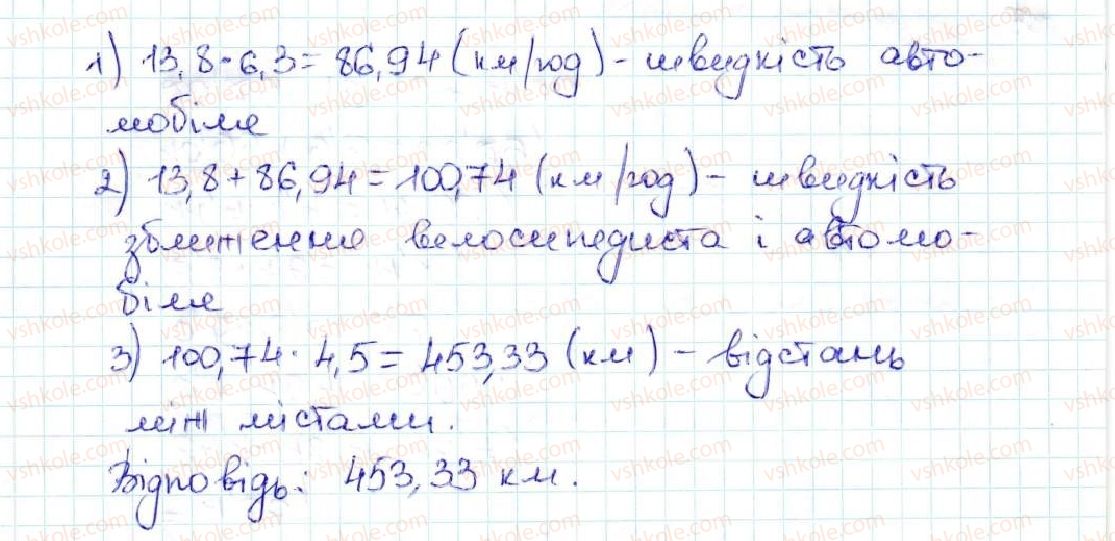 1) 13,8·6,3=86,94 (км/год)- швидкість авто-
мобіля
2) 13,8+86,94=100,74 (км/год)- швидкість
зближення велосипедиста і автомо-
біля
3) 100,74·4,5=453,33 (км) - відстань
між містами.
Відповідь: 453,33 км.